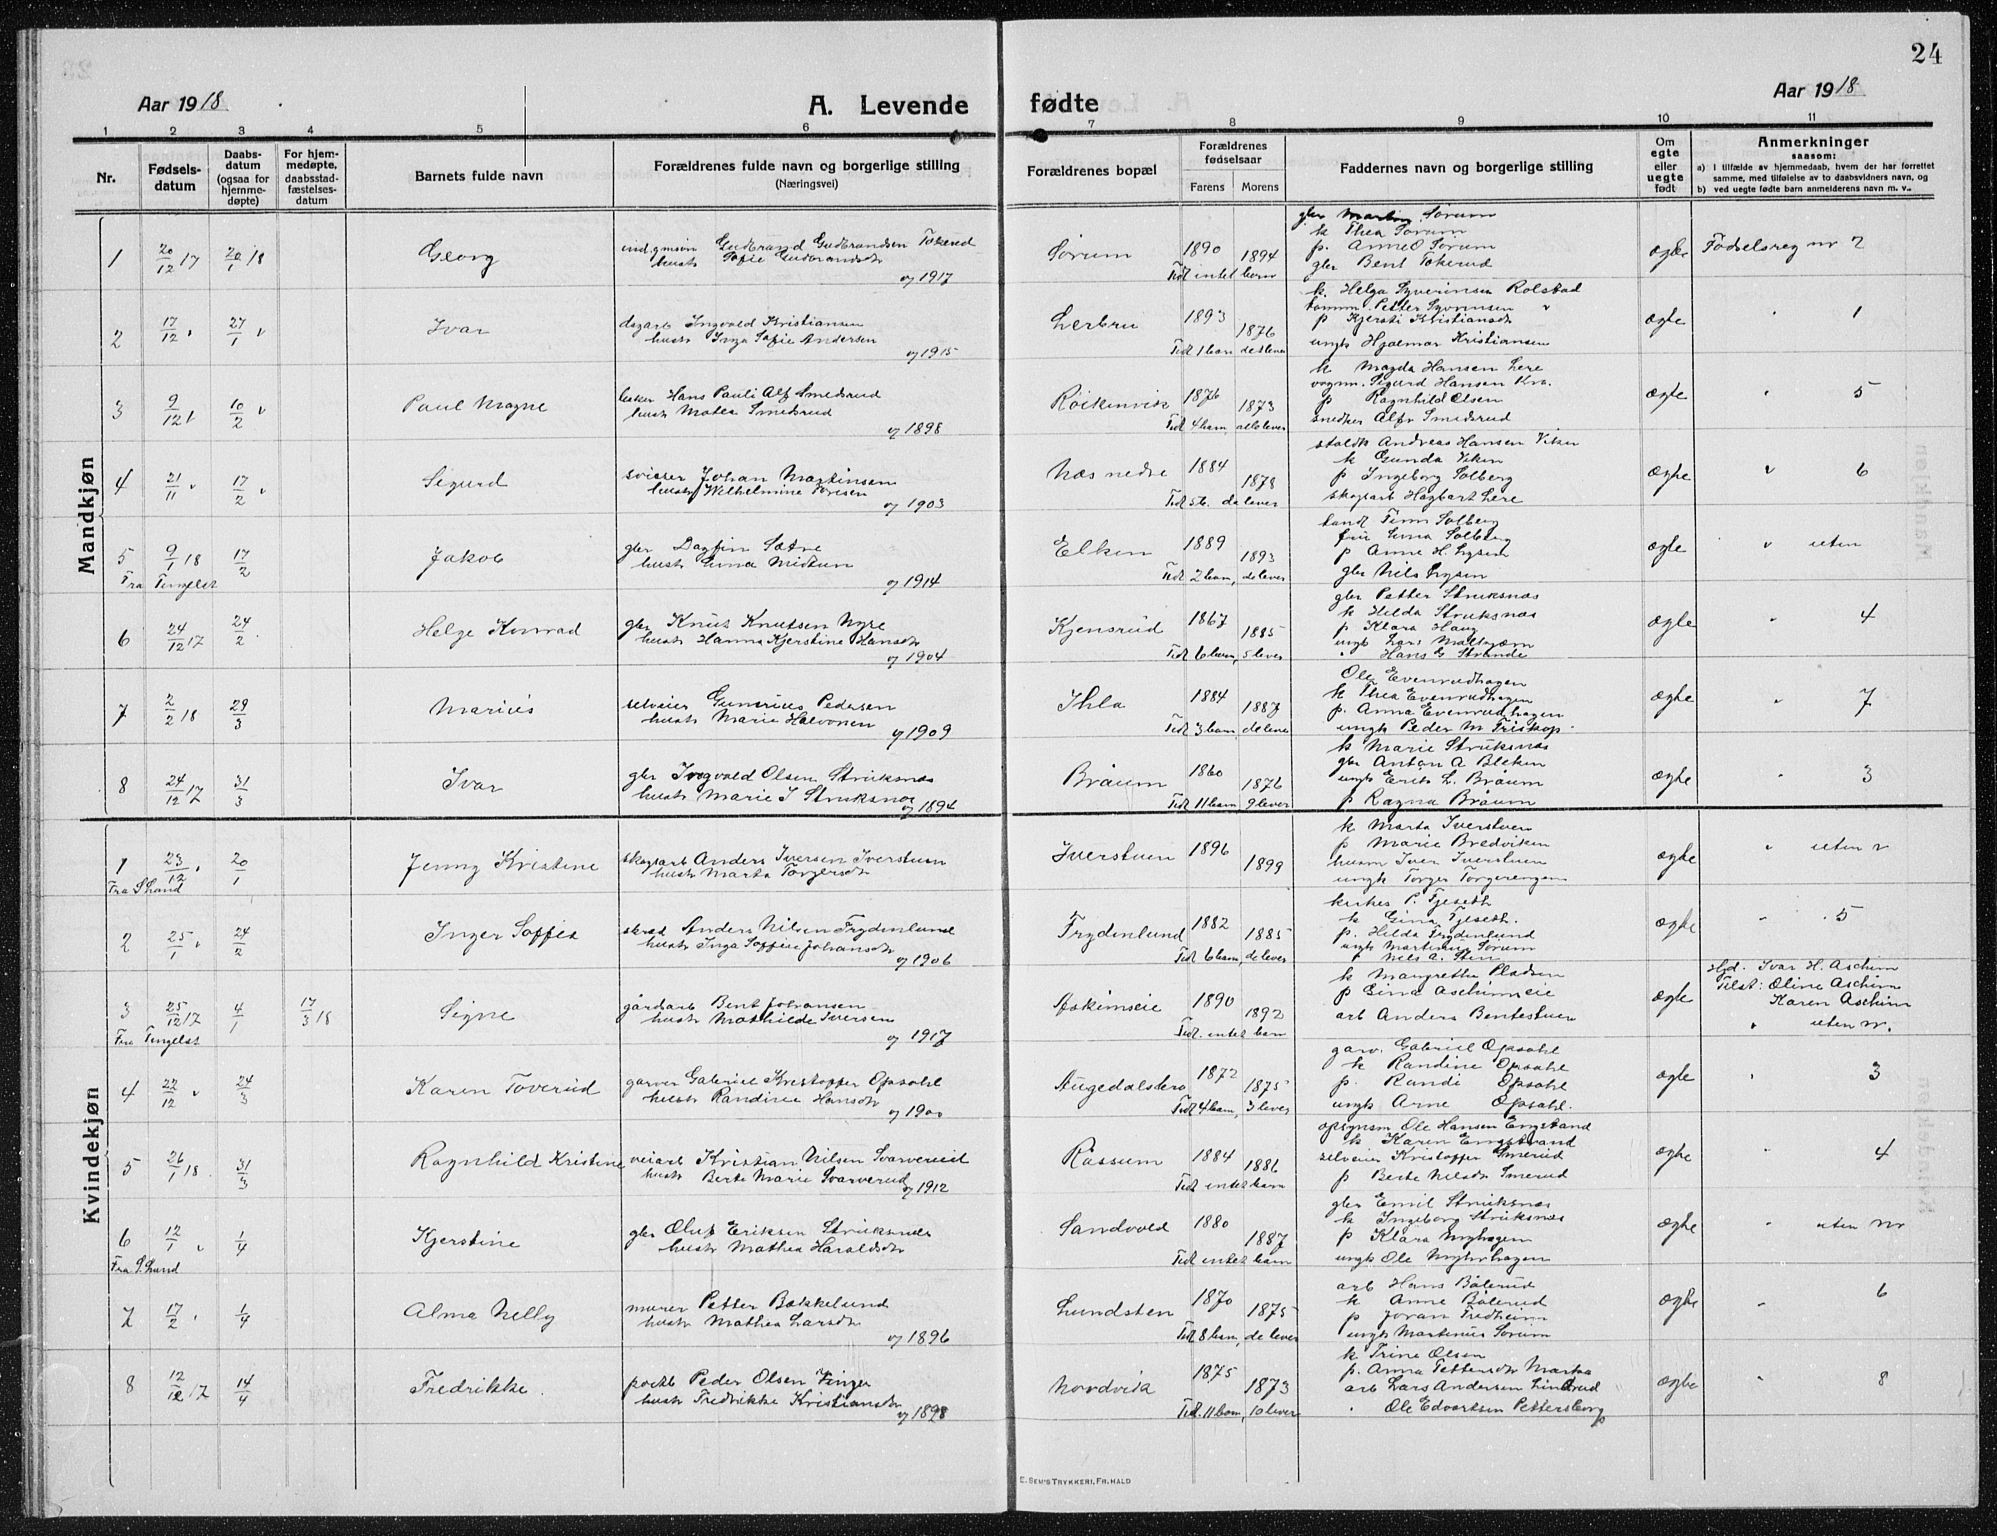 24
Aar 1918
A. Levende fødte
Aar 1918
1 2 3 4 5 6 7 8 9 10 11
Nr.
Fødsels-
datum
Daabs-
datum
(ogsaa for
hjemme-
døpte)
For hjem-
medøpte,
daabsstad-
fæstelses-
datum
Barnets fulde navn
Forældrenes fulde navn og borgerlige stilling
(Næringsvei)
Forældrenes bopæl
Forældrenes
fødselsaar
Farens Morens
Faddernes navn og borgerlige stilling
Om
egte
eller
uegte
født
Anmerkninger
saasom:
a) I tilfælde av hjemmedaab, hvem der har forrettet
samme, med tilføielse av to daabsvidners navn, og
b) ved uegte fødte barn anmelderens navn m. v.
Mandkjøn
1 20/12 17 20/1 18 Georg
Gudbrand Gudbrandsen Tokerud
hustr Sofie Gudbrandsdr
og 1917
Sørum 1890 1894
Tidl intet barn
gbr Martin Sørum
k Thea Sørum
p. Anne O Sørum
gbr Bent Tokerud
ægte Fødselsreg nr 2
2 17/12 " 27/1 " Ivar
dagarb Ingvald Kristiansen
hustr Inga Sofie Andersen
og 1915
Lerbru 1893 1876
Tidl 1 barn de lever
k. Helga Syverinsen Rolstad
tømm. Petter Syverinsen "
p Kjersti Kristiansdr
ungk Hjalmar Kristiansen
ægte " 1
3 9/12 " 10/2 " Paul Magne
Hans Pauli Alf Smedsrud
hustr Matea Smedsrud
og 1898
Røikenvik 1876 1873
Tidl 4 barn, alle lever
k Magda Hansen Lere
vognm. Sigurd Hansen Kra.
p Ragnhild Olsen
snedker Alfr Smedsrud
ægte " 5
4 21/11 " 17/2 " Sigurd
sviser Johan Martinsen
hustr Wilhelmine Iversen
og 1903
Næs nedre 1884 1878
Tidl 5 b. de lever
staldk Andreas Hansen Viken
k Gunda Viken
p Ingeborg Solberg
skogsarb Hagbart Lere
ægte " 6
5 9/1 18 17/2 Jakob
Fra Tingelst
gbr Dagfin Sætre
hustr Lina Midtun
og 1914
Elken 1889 1893
Tidl 2 barn, de lever
landh Finn Solberg
fru Lina Solberg
p Anne H. Lysen
gbr Nils Lysen
ægte " uten
6 24/12 17 24/2 Helge Konrad
gbr Knut Knutsen Nyre
hustr Hanna Kjerstine Hansdr
og 1904
Kjensrud 1867 1885
Tidl 6 barn, 5 lever
gbr Petter Struksnæs
k Hilda Struksnæs
p Klara Haug
ungk Lars
" Hans G Strande
ægte " 4
7 2/2 18 29/3 Marius
selveier Gunerius Pedersen
hustr Marie Halvorsen
og 1909
Ihla 1884 1887
Tidl 3 barn, de lever
Ole Evenrudhagen
k Thea Evenrudhagen
p. Anna Evenrudhagen
ungk Peder M Friskop
ægte " 7
8 24/12 17 31/3 Ivar
gbr Ingvald Olsen Struksnæs
hustr Marie J Struksnæs
og 1894
Bråum 1860 1876
Tidl 11 barn 9 lever
k Marie Struksnæs
gbr Anton A Bleken
ungk Erik L. Bråum
p Ragna Bråum
ægte " 3
Kvindekjøn
1 23/12 " 20/1 Jenny Kristine
Fra S Land
skogsarb Anders Iversen Iverstuen
hustr Marta Torgersdr
Iverstuen 1896 1899
k Marta Iverstuen
p Marie Bredviken
husm Iver Iverstuen
ungk Torger Torgerengen
ægte " uten nr
2 25/1 " 24/2 Inger Soffie
skræd Anders Nilsen Frydenlund
hustr Inga Soffie Johansdr
og 1906
Frydenlund 1882 1885
Tidl 6 barn, de lever
kirkes P. Fjeseth
k Gina Fjeseth.
p. Hilda Frydenlund
ungk Martinius Sørum
" Nils A. Sten
ægte " 5
3 25/12 17 4/1 17/3 18 Signe
Fra Tingelst
gårdarb Bent Johansen
hustr Mathilde Iversen
og 1917
Askimseie 1890 1892
Tidl. intet barn
k Mangrethe Pladsen
p Gina Aschimseie
arb Anders Bentestuen
ægte
Hjd. Ivar H. Aschim
Tilst: Oline Aschim
Karen Aschim
" uten nr.
4 22/12 " 24/3 Karen Toverud
garver Gabriel Kristoffer Opsahl
hustr Randine Hansdr
og 1900
Augedalsbro 1872 1875
Tidl 4 barn, 3 lever
garv. Gabriel Opsahl
k Randine Opsahl
p. Randi Opsahl
ungk Arne Opsahl.
ægte " 3
5 26/1 18 31/3 Ragnhild Kristine
veiarb Kristian Nilsen Svarverud
hustr Berte Marie Svarverud
og 1912
Råssum 1884 1886
Tidl intet barn
opsynsm Ole Hansen Engstrand
k Karen Engstrand
selveier Kristoffer Smerud
p Berte Nilsdr Smerud
ægte " 4
6 12/1 " 1/4 Kjerstine
Fra S. Land
gbr Oluf Eriksen Struksnæs
hustr Mathea Haraldsdr
Sandvold 1880 1887
Tidl intet barn
gbr Emil Struksnæs
k Ingeborg Struksnæs
p Klara Myhrhagen
ungk Ole Myhrhagen
ægte " uten nr
7 17/2 " 1/4 Alma Nelly
murer Petter Bakkelund
hustr Mathea Larsdr
og 1896
Lundsten 1870 1875
Tidl 8 barn, de lever
arb Hans Bølerud
k Anne Bølerud
p Joran Fredheim
ungk Martinius Sørum
ægte " 6
8 12/12 17 14/4 Fredrikke
postb Peder Olsen Vinger
hustr Fredrikke Kristiansdr
og 1898
Nordvik 1875 1873
Tid. 11 barn, 10 lever
k Trine Olsen
p. Anna Pettersdr Marka
arb Lars Andersen Lindrud
" Ole Edvartsen Pettersborg
ægte " 8
E. SEM'S TRYKKERI, FR.HALD